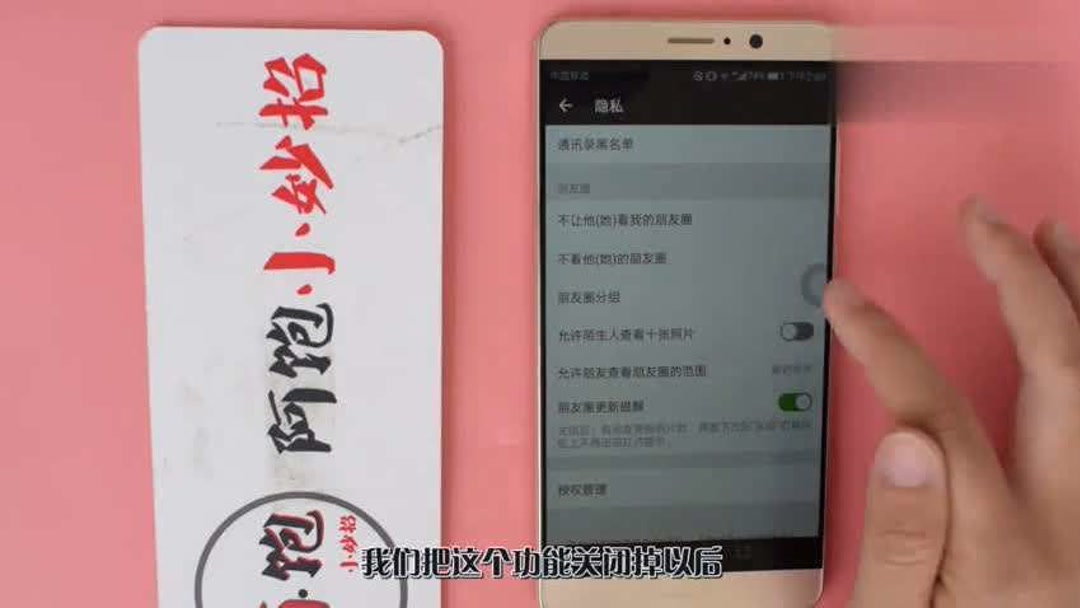 阿饱·小妙招
饱
小妙招
中国移动
隐私
通讯录黑名单
朋友圈
不让他(她)看我的朋友圈
不看他(她)的朋友圈
朋友圈分组
允许陌生人查看十张照片
允许朋友查看朋友圈的范围
朋友圈更新提醒
授权管理
我们把这个功能关闭掉以后